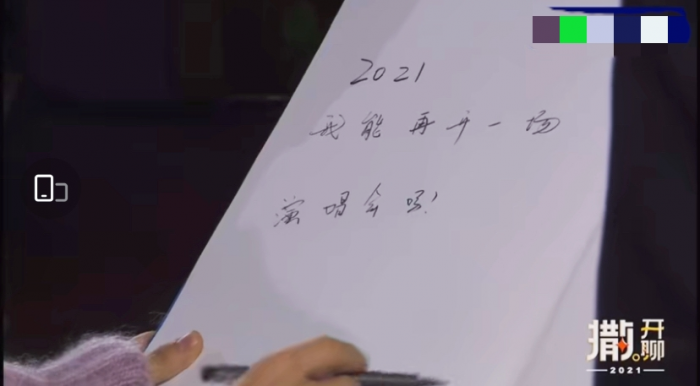 2021
我能再开一场
演唱会吗!
撒开聊
2021